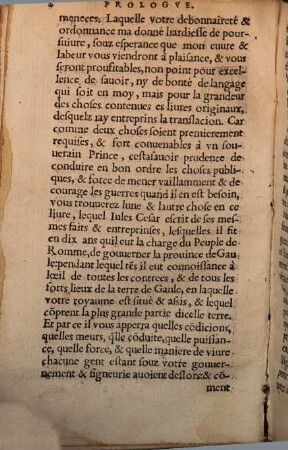 PROLOGVE.
menceês. Laquelle votre debonnaireté &
ordonnance ma donné hardiesse de pour-
suiure, souz esperance que mon euure &
labeur vous viendront à plaisance, & vous
seront proufitables, non point pour excel-
lence de sauoir, ny de bonté de langage
qui soit en moy, mais pour la grandeur
des choses contenues es liures originaux,
desquelz iay entreprins la translacion. Car
comme deux choses soient premierement
requises, & fort conuenables à vn sou-
uerain Prince, cestasauoir prudence de
conduire en bon ordre les choses publi-
ques, & force de mener vaillamment & de
courage les guerres quand il en est besoin,
vous trouuerez lune & lautre chose en ce
liure, lequel Iules Cesar escrit de ses mes-
mes faits & entreprinses, lesquelles il fit
en dix ans quil eut la charge du Peuple de
Romme, de gouuerner la prouince de Gau
le: pendant lequel tẽs il eut connoissance à
lœil de toutes les contrees, & de tous les
forts lieux de la terre de Gaule, en laquelle
votre royaume est situé & assis, & lequel
cõprent la plus grande partie dicelle terre.
Et par ce il vous apperra quelles cõdicions,
quelles meurs, q̃lle cõduite, quelle puissan-
ce, quelle force, & quelle maniere de viure
chacune gent estant souz votre gouuer-
nement & signeurie auoient deslors: & cõ-
ment